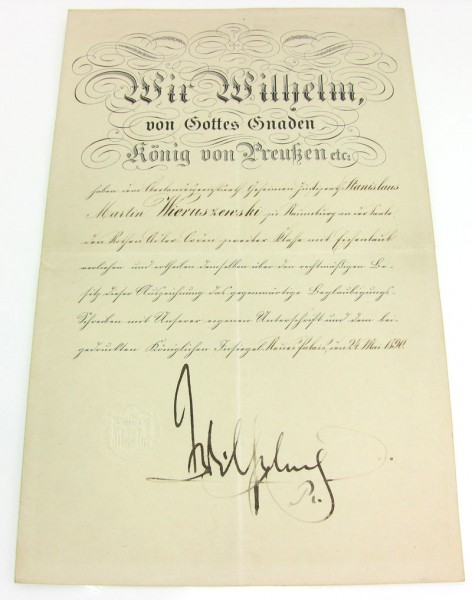 Wir Wilhelm,
von Gottes Gnaden
König von Preußen etc.
haben dem Oberlandesgerichtsrath Geheimen Justizrath Stanislaus
Martin Wieruszewski zu Naumburg an der Saale
den Rothen Adler Orden zweiter Klasse mit Eichenlaub
verliehen und ertheilen demselben über den rechtmäßigen Be-
sitz dieser Auszeichnung das gegenwärtige Beglaubigungs-
Schreiben mit Unserer eigenen Unterschrift und dem bei-
gedruckten Königlichen Insiegel. Neues Palais, den 24. Mai 1890.
Wilhelm